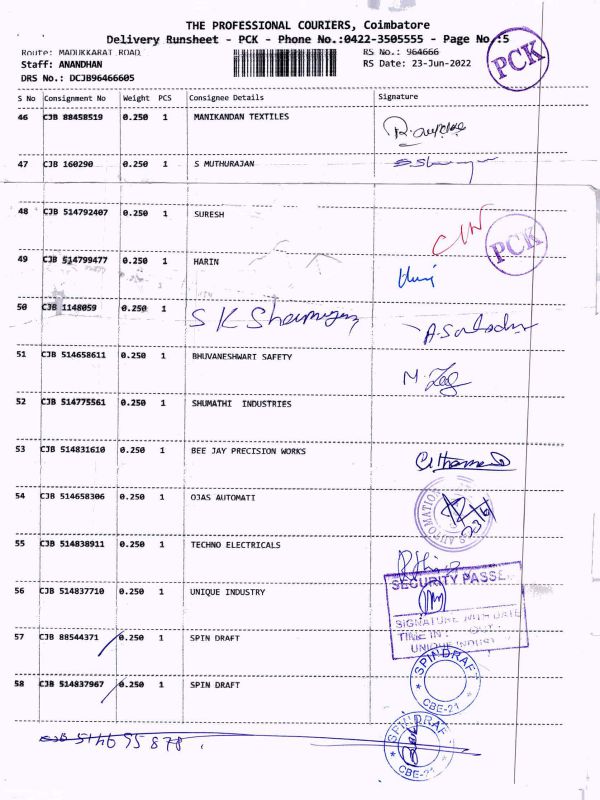 THE PROFESSIONAL COURIERS, Coimbatore
Delivery Runsheet - PCK - Phone No.:0422-3505555 - Page No.:5
Route: MADUKKARAI ROAD RS No.: 964666
Staff: ANANDHAN RS Date: 23-Jun-2022
DRS No.: DCJB96466605
PCK
S No Consignment No Weight PCS Consignee Details Signature
46 CJB 88458519 0.250 1 MANIKANDAN TEXTILES
47 CJB 160290 0.250 1 S MUTHURAJAN
48 CJB 514792407 0.250 1 SURESH
PCK
49 CJB 514799477 0.250 1 HARIN
50 CJB 1148059 0.250 1 S K
51 CJB 514658611 0.250 1 BHUVANESHWARI SAFETY
52 CJB 514775561 0.250 1 SHUMATHI INDUSTRIES
53 CJB 514831610 0.250 1 BEE JAY PRECISION WORKS
54 CJB 514658306 0.250 1 OJAS AUTOMATI
AUTOMATION
55 CJB 514838911 0.250 1 TECHNO ELECTRICALS
SECURITY PASSE
56 CJB 514837710 0.250 1 UNIQUE INDUSTRY
SIGNATURE WITH DATE
TIME IN: OUT
UNIQUE
57 CJB 88544371 0.250 1 SPIN DRAFT
SPINDRAFT
58 CJB 514837967 0.250 1 SPIN DRAFT
CBE-21
CJB 514695878.
SPINDRAFT
CBE-21